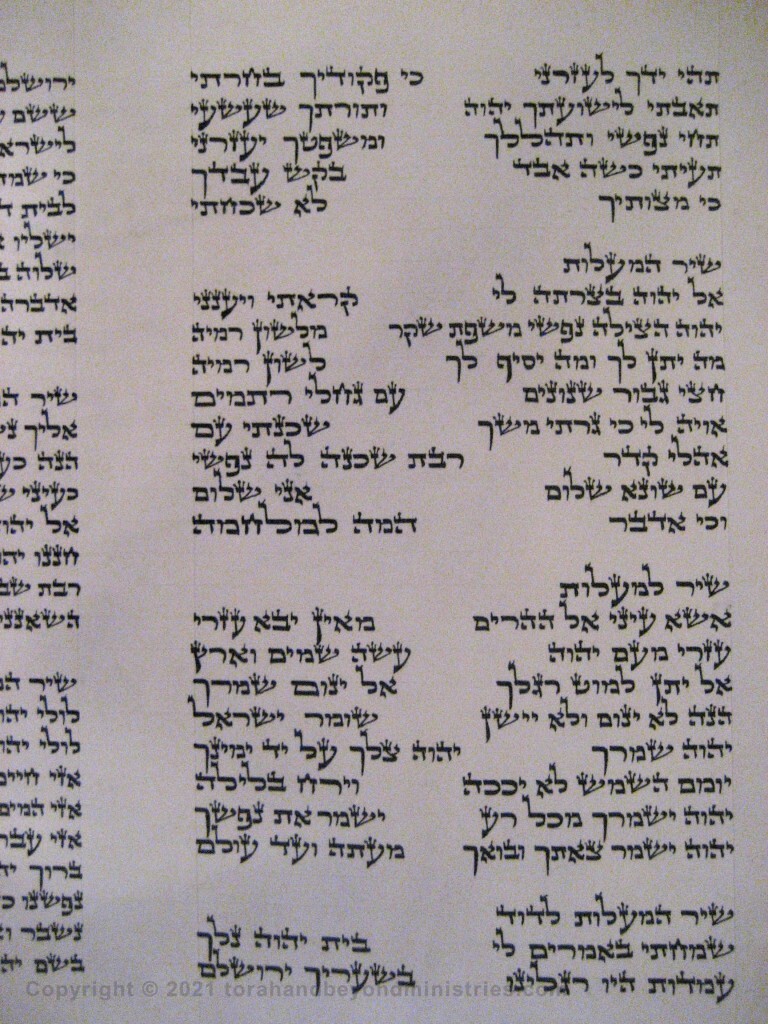 תהי ידך לעזרני כי פקודיך בחרתי
תאבתי לישועתך יהוה ותורתך שעשעי
תחי נפשי ותהללך ומשפטך יעזרני
תעיתי כשה אבד בקש עבדך
כי מצותיך לא שכחתי
שיר המעלות
אל יהוה בצרתה לי קראתי ויענני
יהוה הצילה נפשי משפת שקר מלשון רמיה
מה יתן לך ומה יסיף לך לשון רמיה
חצי גבור שנונים עם גחלי רתמים
אויה לי כי גרתי משך שכנתי עם
אהלי קדר רבת שכנה לה נפשי
עם שונא שלום אני שלום
וכי אדבר המה למלחמה
שיר למעלות
אשא עיני אל ההרים מאין יבא עזרי
עזרי מעם יהוה עשה שמים וארץ
אל יתן למוט רגלך אל ינום שמרך
הנה לא ינום ולא יישן שומר ישראל
יהוה שמרך יהוה צלך על יד ימינך
יומם השמש לא יככה וירח בלילה
יהוה ישמרך מכל רע ישמר את נפשך
יהוה ישמר צאתך ובואך מעתה ועד עולם
שיר המעלות לדוד
שמחתי באמרים לי בית יהוה נלך
עמדות היו רגלינו בשעריך ירושלם
ששם
כי
לבית
ישליו
שלוה
אדברה
בית
שיר
אליך
הנה
כעיני
אל
חננו
רבת
שיר
לולי
לולי
אזי חיים
אזי המים
אזי
ברוך
נפשנו
נשבר
בשם
Copyright © 2021 torahandbeyondministries.com